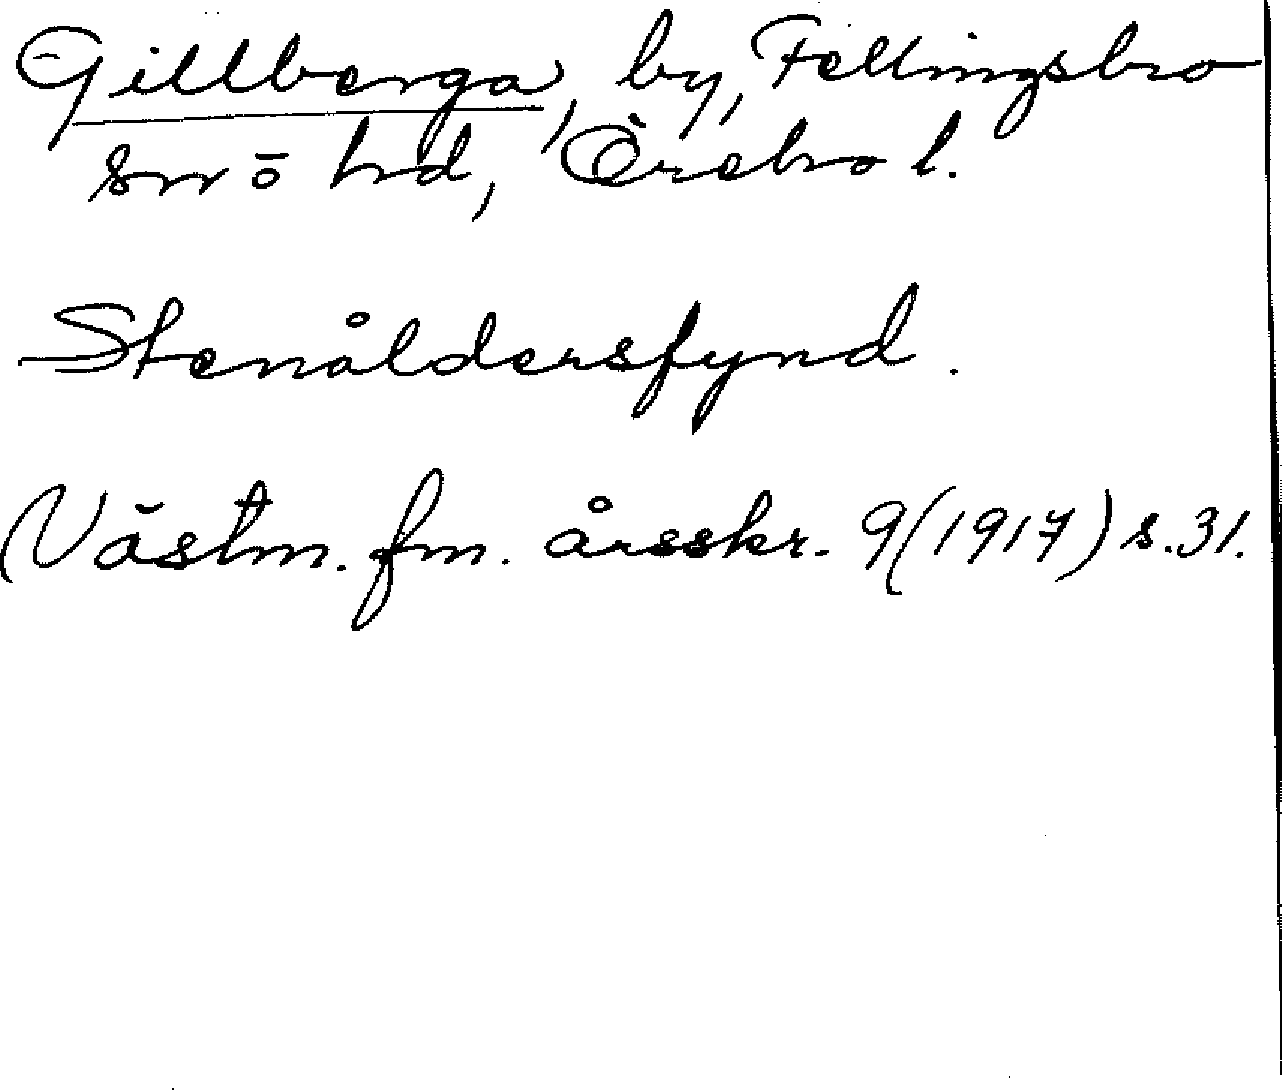 Gillberga, by, Fellingsbro
sn o hd, Örebro l.
Stenåldersfynd.
Västm. fm. årsskr. 9 (1917) s. 31.